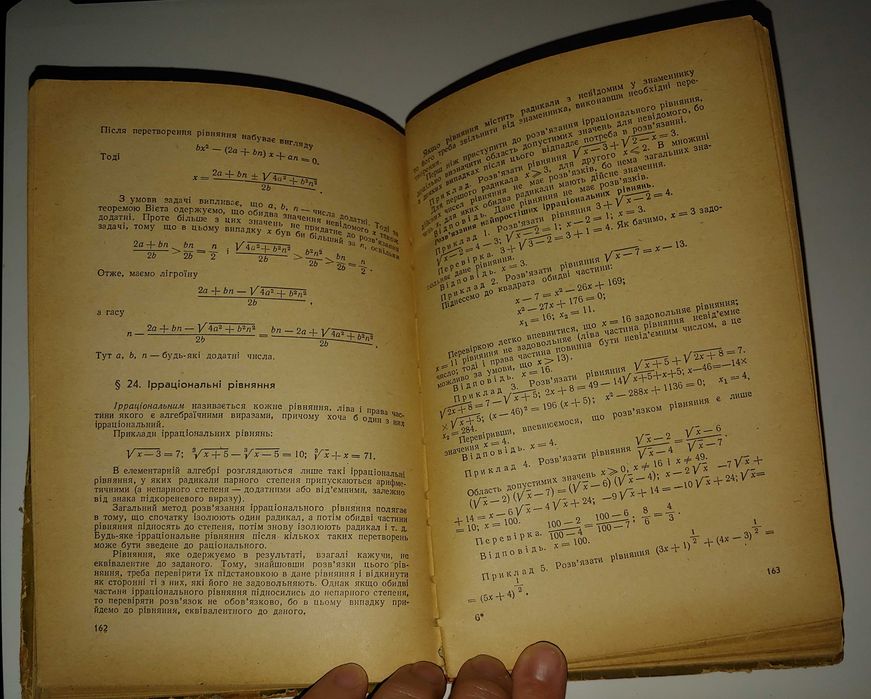 Після перетворення рівняння набуває вигляду
bx² — (2a + bn) x + an = 0.
Тоді
x = (2a + bn ± √(4a² + b²n²)) / 2b.
З умови задачі випливає, що a, b, n — числа додатні. Тоді за
теоремою Вієта одержуємо, що обидва значення невідомого x також
додатні. Проте більше з цих значень не придатне до розв'язання
задачі, тому що в цьому випадку x був би більший за n, оскільки
(2a + bn)/2b > bn/2b = n/2 і √(4a² + b²n²)/2b > b²n²/2b > bn/2b = n/2.
Отже, маємо лігроїну
(2a + bn — √(4a² + b²n²)) / 2b,
а гасу
n — (2a + bn — √(4a² + b²n²)) / 2b = (bn — 2a + √(4a² + b²n²)) / 2b.
Тут a, b, n — будь-які додатні числа.
§ 24. Ірраціональні рівняння
Ірраціональним називається кожне рівняння, ліва і права час-
тини якого є алгебраїчними виразами, причому хоча б один з них
ірраціональний.
Приклади ірраціональних рівнянь:
√(x — 3) = 7; ∛(x + 5) — ∛(x — 5) = 10; ∛x + x = 71.
В елементарній алгебрі розглядаються лише такі ірраціональні
рівняння, у яких радикали парного степеня припускаються арифме-
тичними (а непарного степеня — додатними або від'ємними, залежно
від знака підкореневого виразу).
Загальний метод розв'язання ірраціонального рівняння полягає
в тому, що спочатку ізолюють один радикал, а потім обидві частини
рівняння підносять до степеня, потім знову ізолюють радикал і т. д.
Будь-яке ірраціональне рівняння після кількох таких перетворень
може бути зведене до раціонального.
Рівняння, яке одержуємо в результаті, взагалі кажучи, не
еквівалентне до заданого. Тому, знайшовши розв'язки цього рів-
няння, треба перевірити їх підстановкою в дане рівняння і відкинути
як сторонні ті з них, які його не задовольняють. Однак якщо обидві
частини ірраціонального рівняння підносились до непарного степеня,
то перевіряти розв'язок не обов'язково, бо в цьому випадку при-
йдемо до рівняння, еквівалентного до даного.
162
Якщо рівняння містить радикали з невідомим у знаменнику
то його треба звільнити від знаменника, виконавши необхідні пере-
творення.
Перш ніж приступити до розв'язання ірраціонального рівняння,
доцільно визначити область допустимих значень для невідомого, бо
в деяких випадках після цього відпадає потреба в розв'язанні.
Приклад. Розв'язати рівняння √(x — 3) + √(2 — x) = 3.
Для першого радикала x ⩾ 3, для другого x ⩽ 2. В множині
дійсних чисел рівняння не має розв'язків, бо нема загальних зна-
чень x, для яких обидва радикали мають дійсне значення.
Відповідь. Дане рівняння не має розв'язків.
Розв'язання найпростіших ірраціональних рівнянь.
Приклад 1. Розв'язати рівняння 3 + √(x — 2) = 4.
√(x — 2) = 4 — 3; √(x — 2) = 1; x — 2 = 1; x = 3.
Перевірка. 3 + √(3 — 2) = 3 + 1 = 4. Як бачимо, x = 3 задо-
вольняє дане рівняння.
Відповідь. x = 3.
Приклад 2. Розв'язати рівняння √(x — 7) = x — 13.
Піднесемо до квадрата обидві частини:
x — 7 = x² — 26x + 169;
x² — 27x + 176 = 0;
x₁ = 16; x₂ = 11.
Перевіркою легко впевнитися, що x = 16 задовольняє рівняння;
x = 11 рівняння не задовольняє (ліва частина рівняння невід'ємне
число; тоді і права частина повинна бути невід'ємним числом, а це
можливо за умови, що x > 13).
Відповідь. x = 16.
Приклад 3. Розв'язати рівняння √(x + 5) + √(2x + 8) = 7.
√(2x + 8) = 7 — √(x + 5); 2x + 8 = 49 — 14√(x + 5) + x + 5; x — 46 = — 14 ×
× √(x + 5); (x — 46)² = 196 (x + 5); x² — 288x + 1136 = 0; x₁ = 4,
x₂ = 284.
Перевіривши, впевнюємося, що розв'язком рівняння є лише
значення x = 4.
Відповідь. x = 4.
Приклад 4. Розв'язати рівняння (√x — 2)/(√x — 4) = (√x — 6)/(√x — 7).
Область допустимих значень x ⩾ 0, x ≠ 16 і x ≠ 49.
(√x — 2) (√x — 7) = (√x — 6) (√x — 4); x — 2√x — 7√x +
+ 14 = x — 6√x — 4√x + 24; — 9√x + 14 = — 10√x + 24; √x =
= 10; x = 100.
Перевірка. (100 — 2)/(100 — 4) = (100 — 6)/(100 — 7); 8/6 = 4/3.
Відповідь. x = 100.
Приклад 5. Розв'язати рівняння (3x + 1)^(1/2) + (4x — 3)^(1/2) =
= (5x + 4)^(1/2).
6*
163